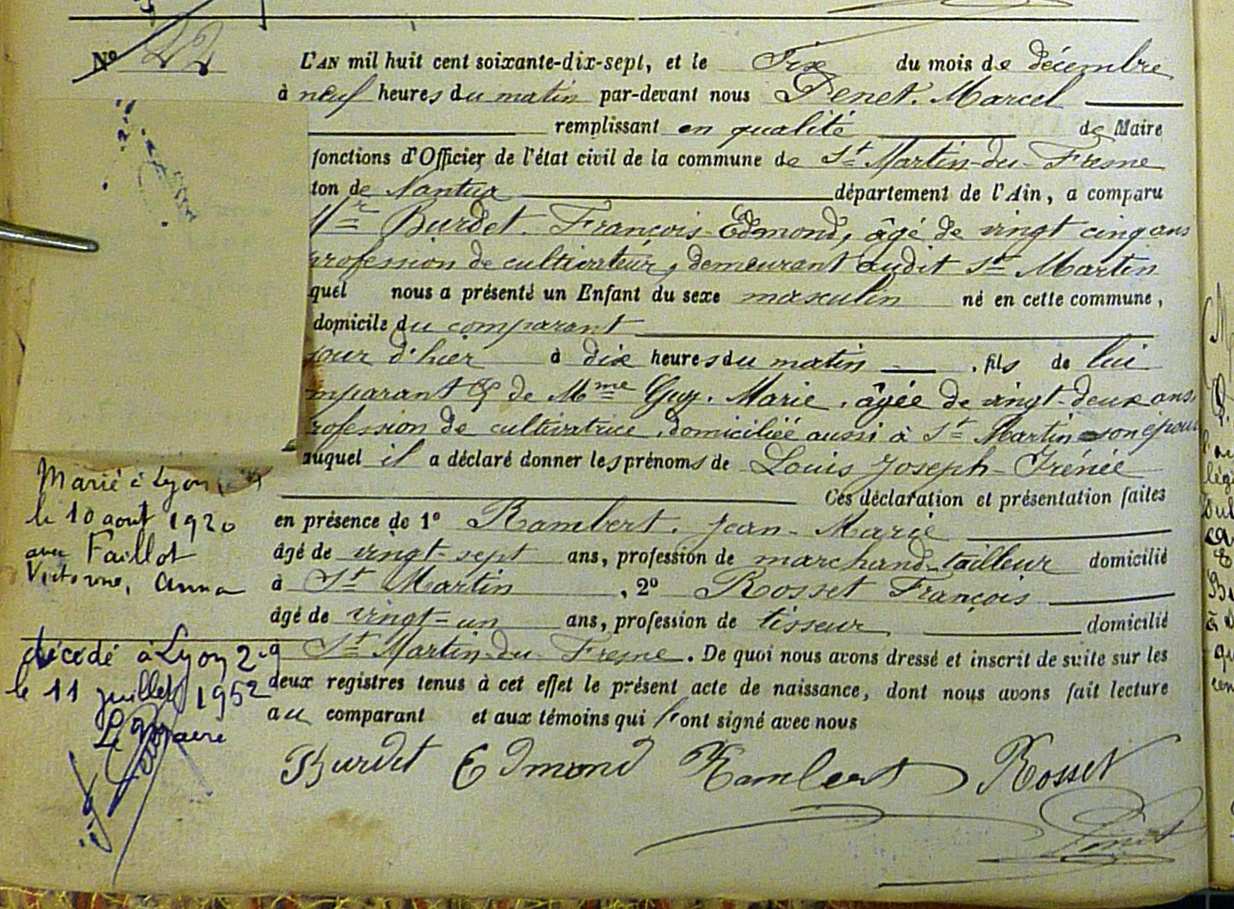 Nº 22
L'AN mil huit cent soixante-dix-sept, et le Six du mois de décembre
à neuf heures du matin par-devant nous Penet. Marcel
remplissant en qualité de Maire
fonctions d'Officier de l'état civil de la commune de St Martin-du-Fresne
ton de Nantua département de l'Ain, a comparu
Mr Burdet. François-Edmond, âgé de vingt cinq ans
profession de cultivateur, demeurant audit St Martin
quel nous a présenté un Enfant du sexe masculin né en cette commune,
domicile du comparant
jour d'hier à dix heures du matin , fils de lui
mparant & de Mme Guy. Marie, âgée de vingt deux ans,
profession de cultivatrice, domiciliée aussi à St Martin son épouse
auquel il a déclaré donner les prénoms de Louis Joseph-Irénée
Ces déclaration et présentation faites
en présence de 1º Rambert. Jean-Marie
âgé de vingt-sept ans, profession de marchand-tailleur domicilié
à St Martin , 2º Rosset François
âgé de vingt-un ans, profession de tisseur, domicilié
St Martin-du-Fresne. De quoi nous avons dressé et inscrit de suite sur les
deux registres tenus à cet effet le présent acte de naissance, dont nous avons fait lecture
au comparant et aux témoins qui l'ont signé avec nous
Burdet Edmond Rambert Rosset
Penet
Marié à Lyon
le 10 aout 1920
avec Faillot
Victorine, Anna
décédé à Lyon 2e
le 11 juillet 1952
Le Maire